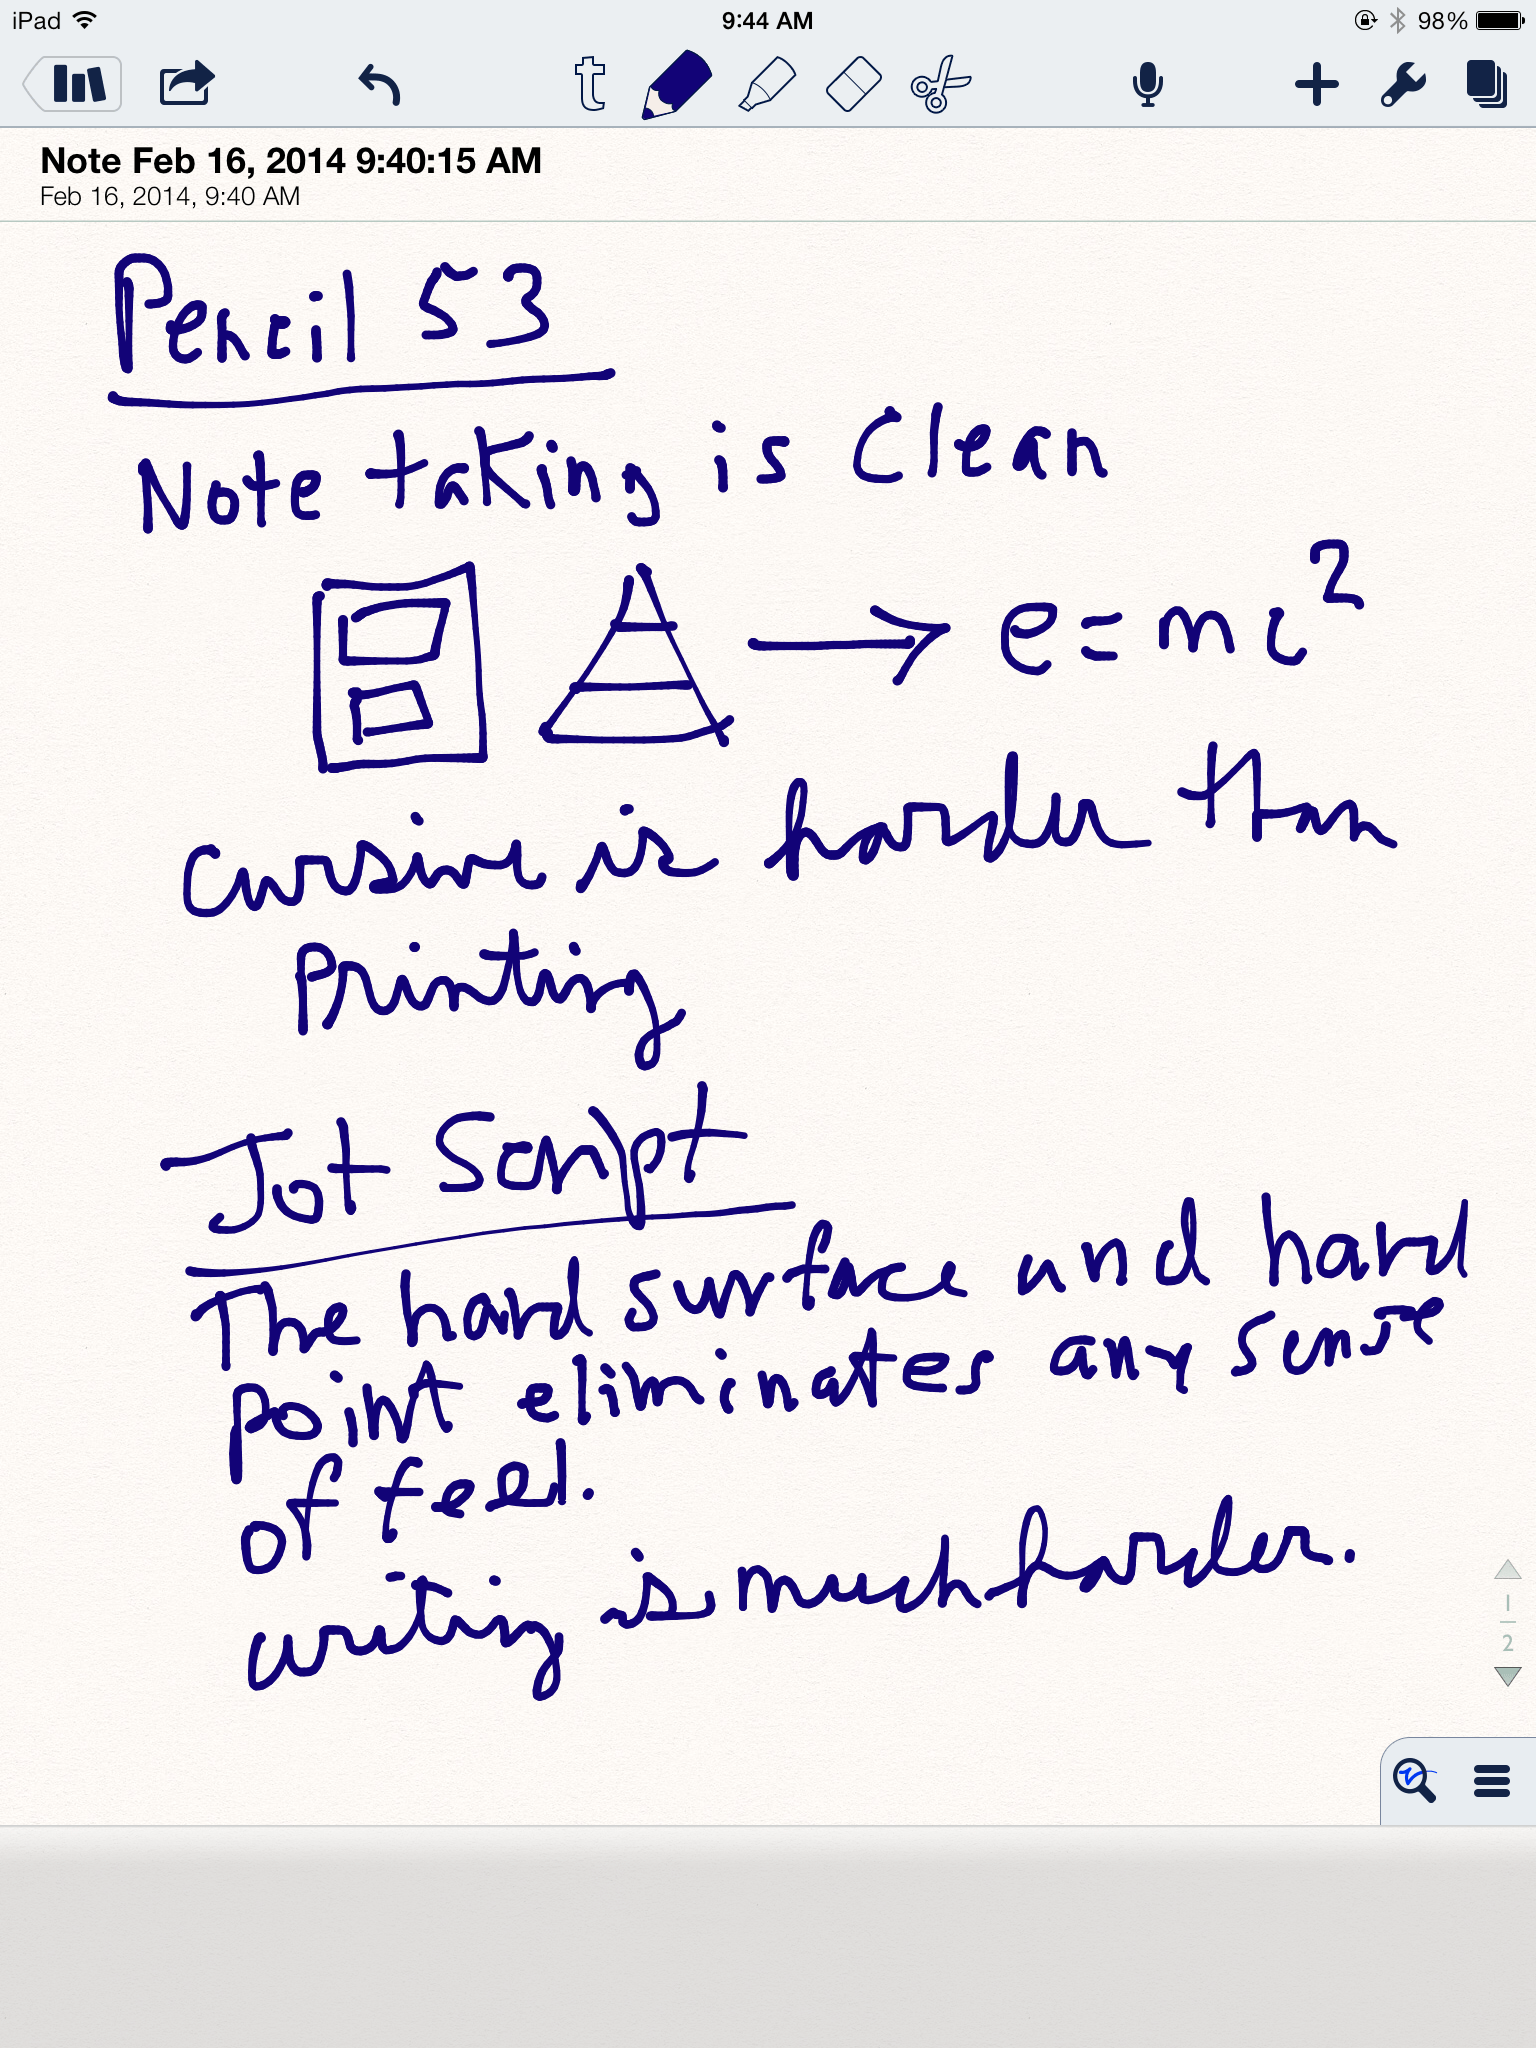 iPad 9:44 AM 98%
t
Note Feb 16, 2014 9:40:15 AM
Feb 16, 2014, 9:40 AM
Pencil 53
Note taking is Clean
e = mc²
Cursive is harder than
Printing
Jot Script
The hard surface and hard
point eliminates any sense
of feel.
writing is much harder.
1
2